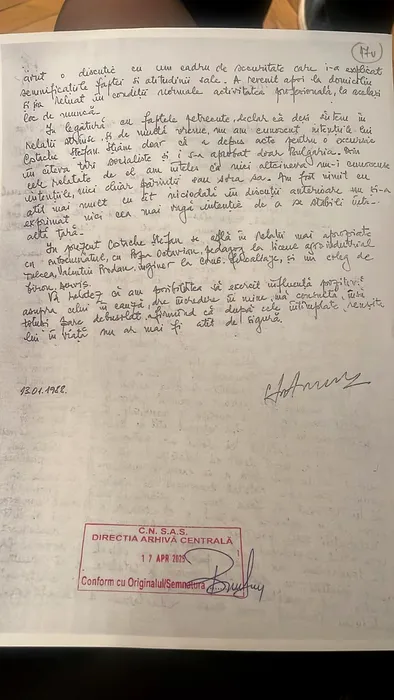 47v
avut o discuție cu un cadru de securitate care i-a explicat
semnificațiile faptei și atitudinii sale. A revenit apoi la domiciliu
și și-a reluat în condiții normale activitatea profesională, la același
loc de muncă.
În legătură cu faptele petrecute, declar că deși suntem în
relații strânse și de multă vreme, nu am cunoscut intențiile lui
Cotache Ștefan. Știam doar că a depus acte pentru o excursie
în câteva țări socialiste și i s-a aprobat doar Bulgaria. Din
cele relatate de el am înțeles că nici altcineva nu-i cunoscuse
intențiile, nici chiar părinții sau sora sa. Am fost uimit cu
atât mai mult cu cât niciodată în discuții anterioare nu și-a
exprimat nici cea mai vagă intenție de a se stabili într-
altă țară.
În prezent Cotache Ștefan se află în relații mai apropiate
cu subsemnatul, cu Octavian, pedagog la liceul agro-industrial
Tulcea, Valentin Prodan, inginer la și un coleg de
birou, servis.
Vă că am posibilitatea să exercit influență pozitivă
asupra celui în cauză, are încredere în mine, mă consultă, însă
totuși pare debusolat, afirmând că după cele întâmplate reușita
lui în viață nu ar mai fi atât de sigură.
13.01.1988.
C.N. S.A.S.
DIRECTIA ARHIVĂ CENTRALĂ
17 APR 2025
Conform cu Originalul/Semnatura